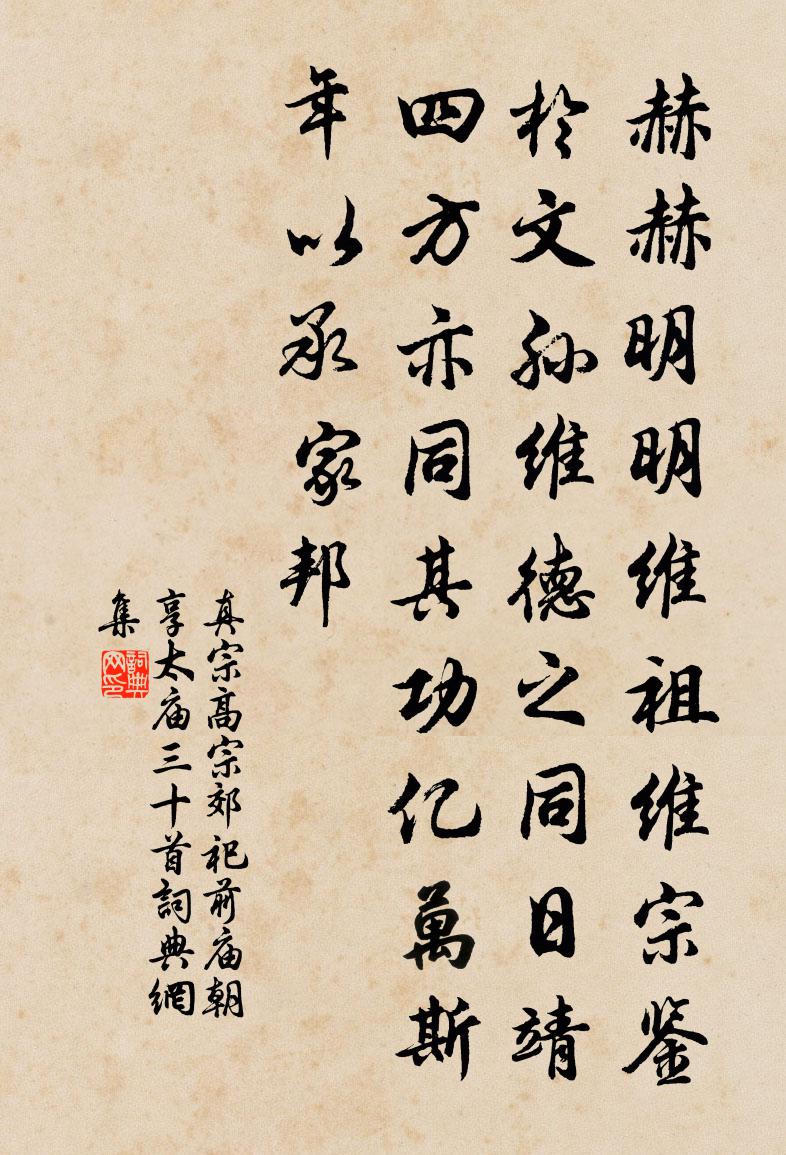 赫赫明明維祖維宗鉴
於文孫維德之同日靖
四方亦同其功亿萬斯
年以承家邦
真宗高宗郊祀前庙朝
享太庙三十首詞典網
集
詞典
网印